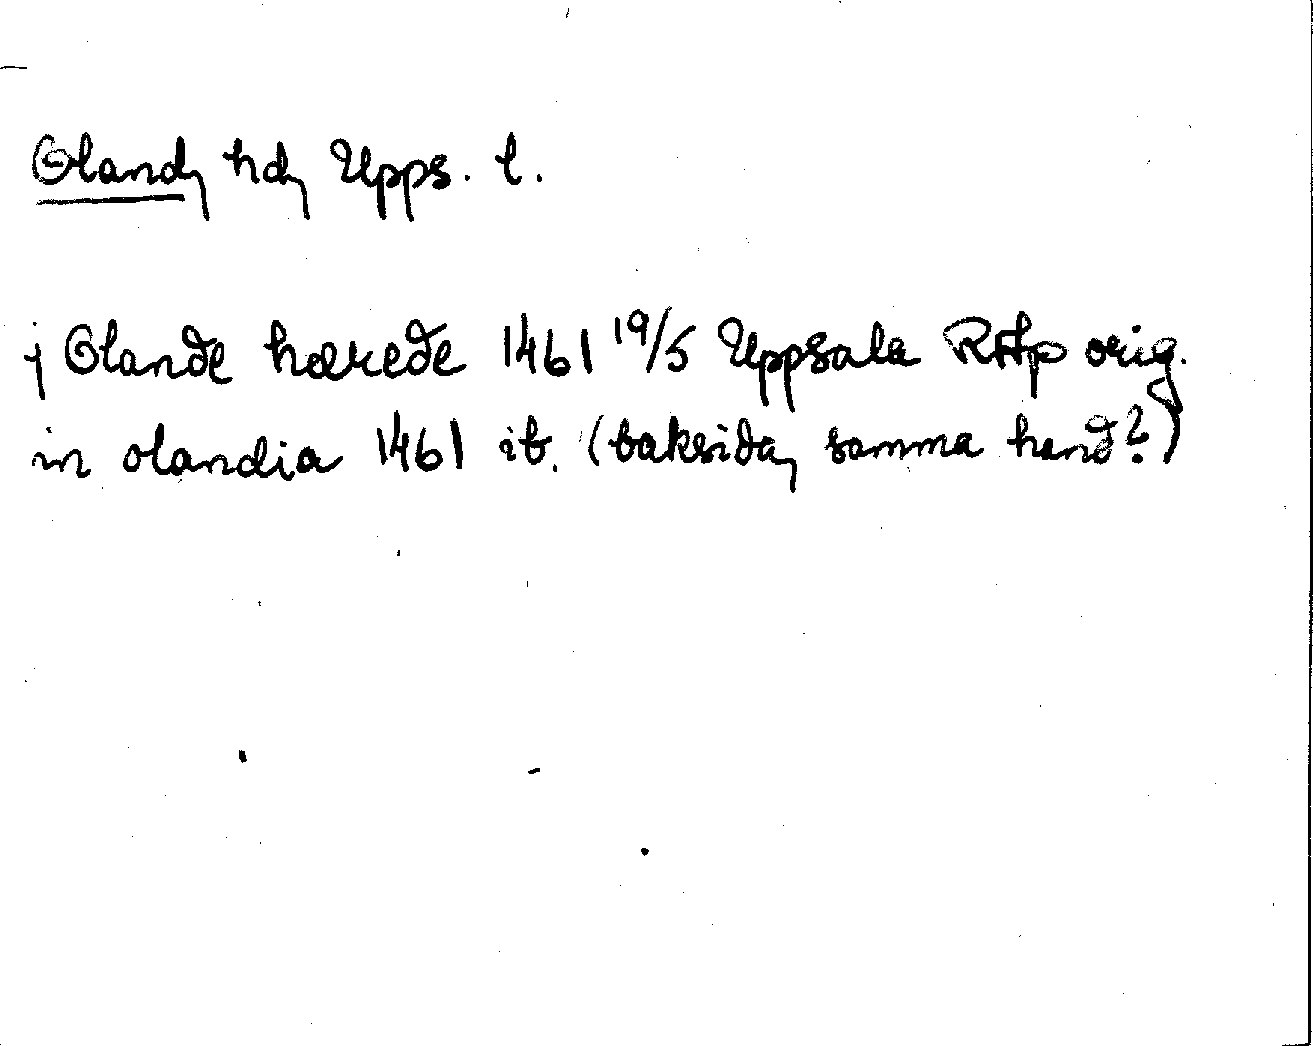 Oland, hd, Upps. l.
j Olande hærede 1461 19/5 Uppsala RAp orig.
in olandia 1461 ib. (baksida, samma hand?)